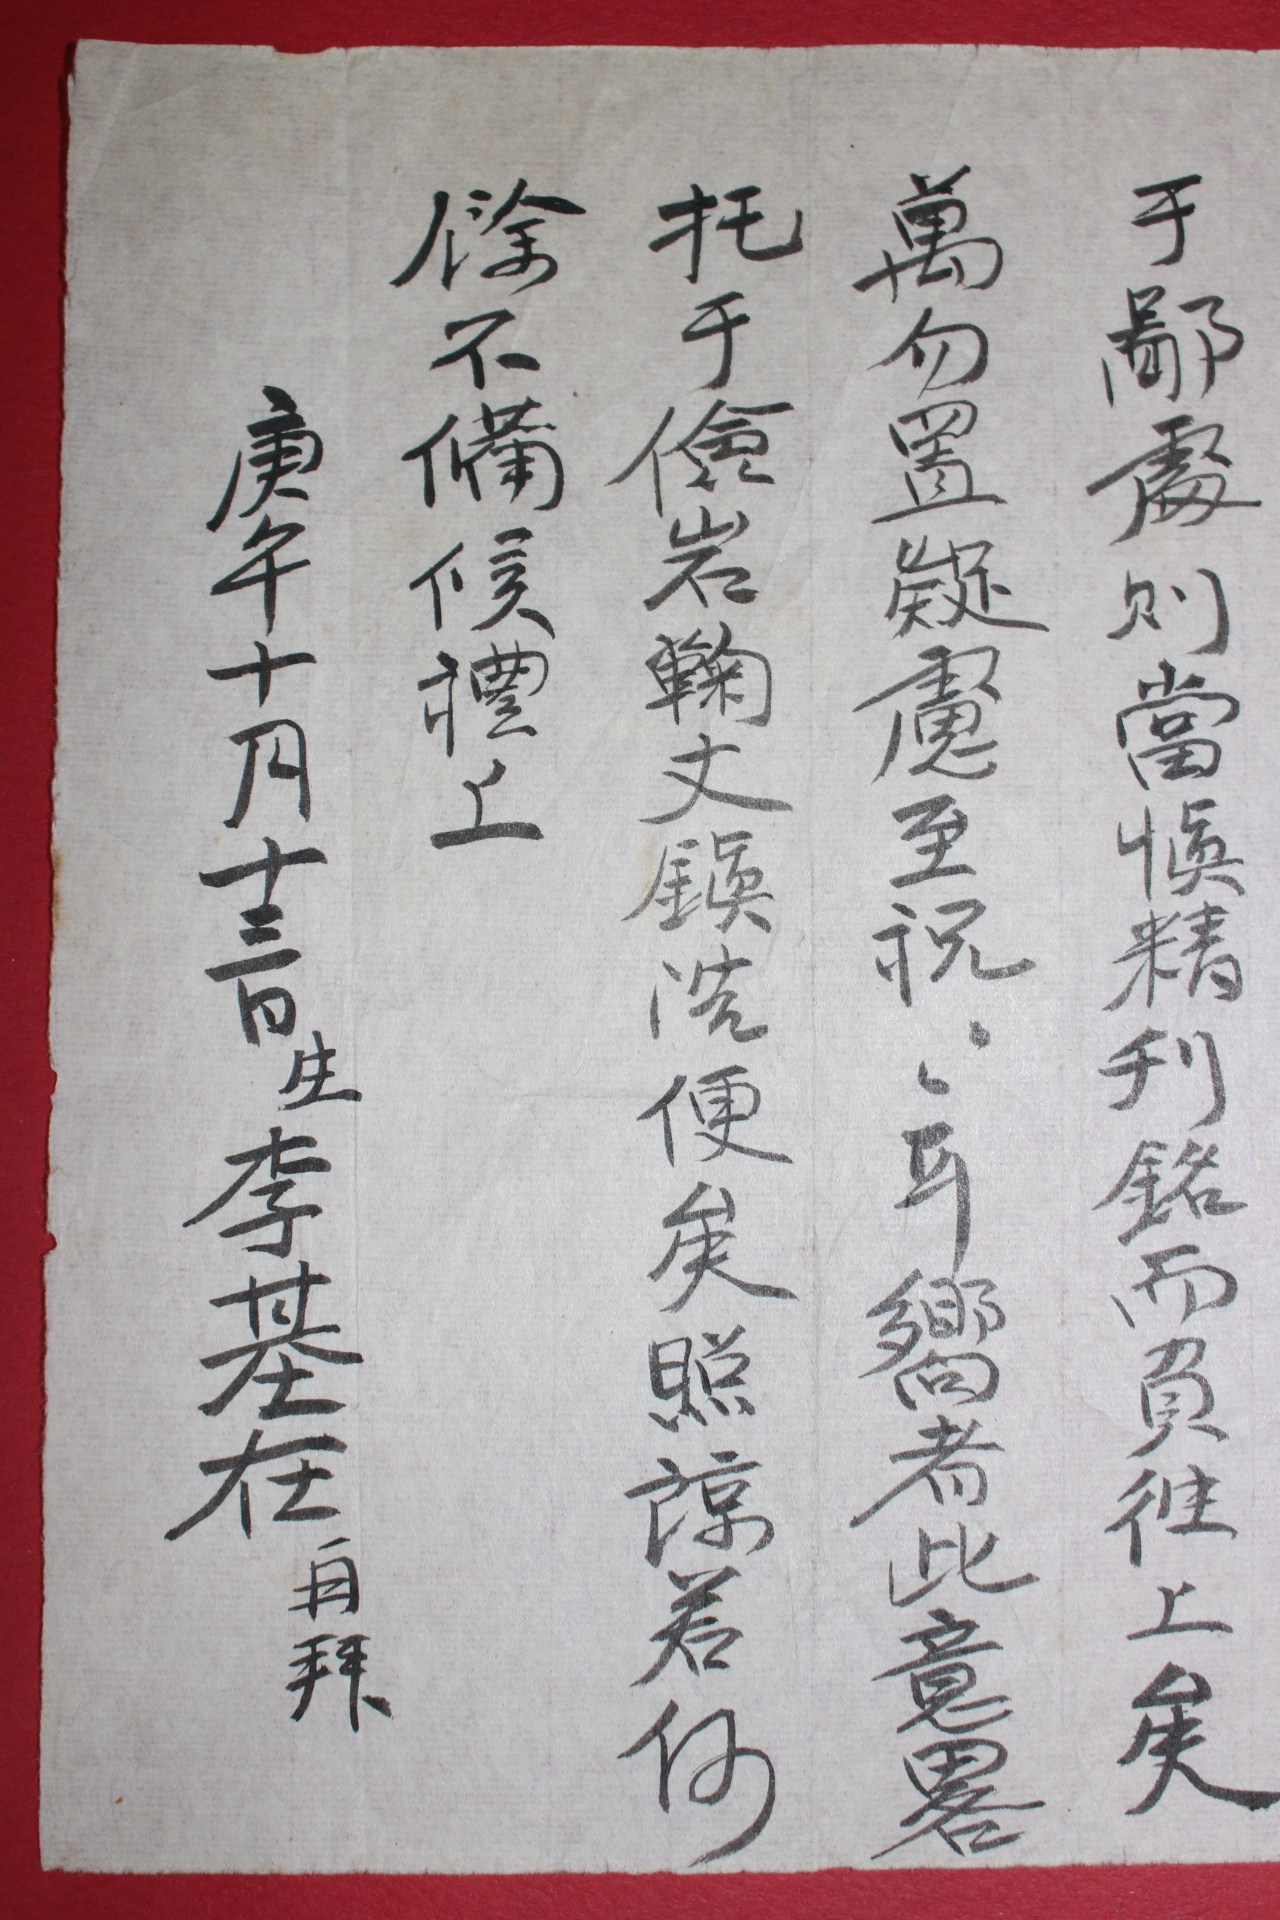 于鄙處則當愼精刊銘而負往上矣
萬勿置疑慮至祝〻耳嚮者此意畧
托于儉岩鞠丈鎭浩便矣照諒若何
餘不備候禮上
庚午十月十三日生李基在再拜